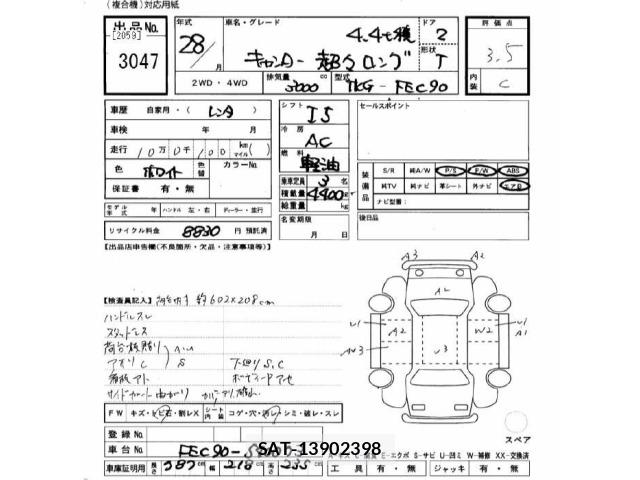 (複合機)対応用紙
出品No.
[2059]
3047
年式
28/月
車名・グレード
4.4t積
キャンター 超々ロング
ドア
2
形状
T
評価点
3.5
内装
C
2WD・4WD
排気量 3000 cc
型式
TKG-FEC90
車歴 自家用・(レンタ)
車検 年 月
走行 10万0千100 km(マイル)
色 ホワイト 色替 カラーNo.
保証書 有・無
モデル年式 年 ハンドル 左・右 ディーラー・並行
リサイクル料金 8830 円 預託済
シフト
I5
冷房
AC
燃料
軽油
乗車定員 3 名
積載量 4400 kg
総重量 kg
名変期限
月 日
セールスポイント
装備品
S/R 純A/W P/S P/W ABS
純TV 純ナビ 革シート 外ナビ エアB
ナビ型番:
後日品
【出品店申告欄(不良箇所・欠品・注意事項等)】
【検査員記入】荷台内寸 約602×208cm
ハンドルスレ
スタットレス
アオリC
S
下廻りS,C
A3 A2
A2
U1 A2 U3 W2 U1
A1
FW キズ・ヒビ石・割レX シート内張 コゲ・穴・汚レ・シミ・破レ・スレ
スペア
登録No.
車台No. FEC90-
SAT-13902398
E-エクボ S-サビ U-凹ミ W-補修 XX-交換済
車庫証明用 長さ 787 cm 幅 218 cm 高さ 235 cm 工具 有・無 ジャッキ 有・無